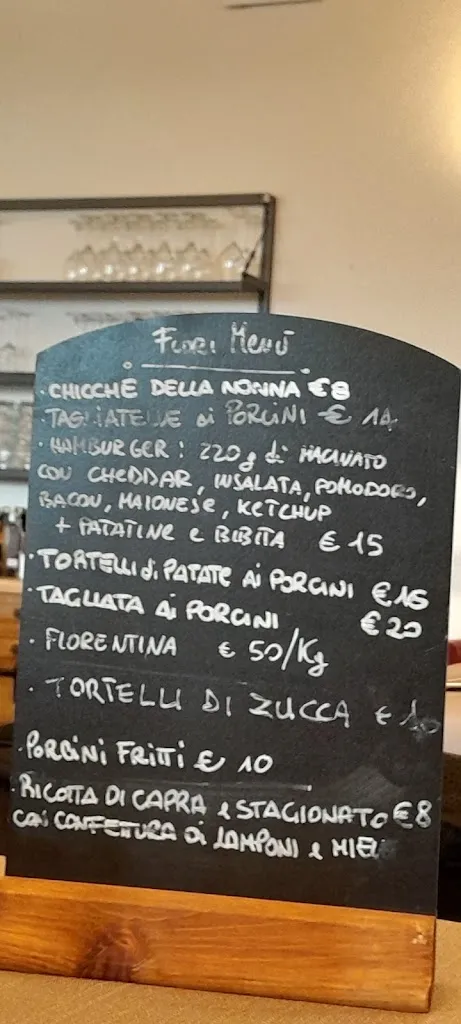 Fuori Menù
· CHICCHE DELLA NONNA €8
· TAGLIATELLE ai PORCINI € 14
· HAMBURGER: 220g di MACINATO
CON CHEDDAR, INSALATA, POMODORO,
BACON, MAIONESE, KETCHUP
+ PATATINE e BIBITA € 15
· TORTELLI di PATATE AI PORCINI € 16
· TAGLIATA AI PORCINI € 20
· FIORENTINA € 50/Kg
· TORTELLI DI ZUCCA €
· PORCINI FRITTI € 10
· RICOTTA DI CAPRA e STAGIONATO €8
CON CONFETTURA di LAMPONI e MIELE